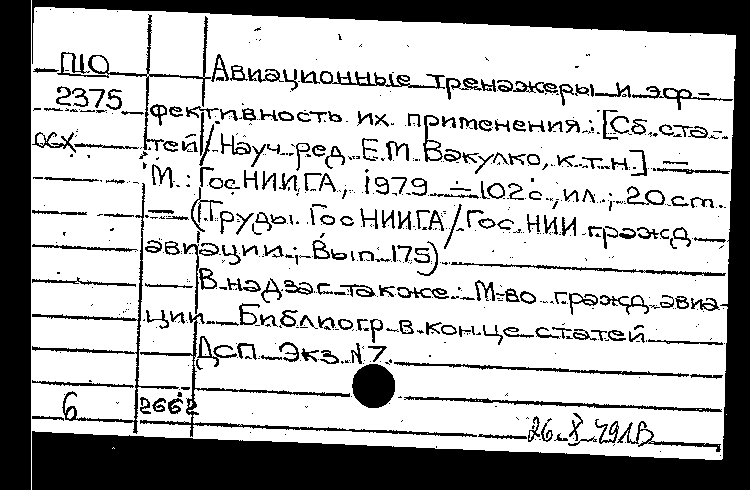 П10 Авиационные тренажеры и эф-
2375 фективность их применения: [Сб. ста-
ОСХ тей / Науч. ред. Е.М. Вакулко, к.т.н.] —
М.: ГосНИИГА, 1979. — 102 с., ил.; 20 см.
— (Труды. ГосНИИГА / Гос. НИИ гражд.
авиации; Вып. 175)
В надзаг. также: М-во гражд. авиа-
ции. Библиогр. в конце статей
ДСП. Экз. N 7.
6 2662
26.X.